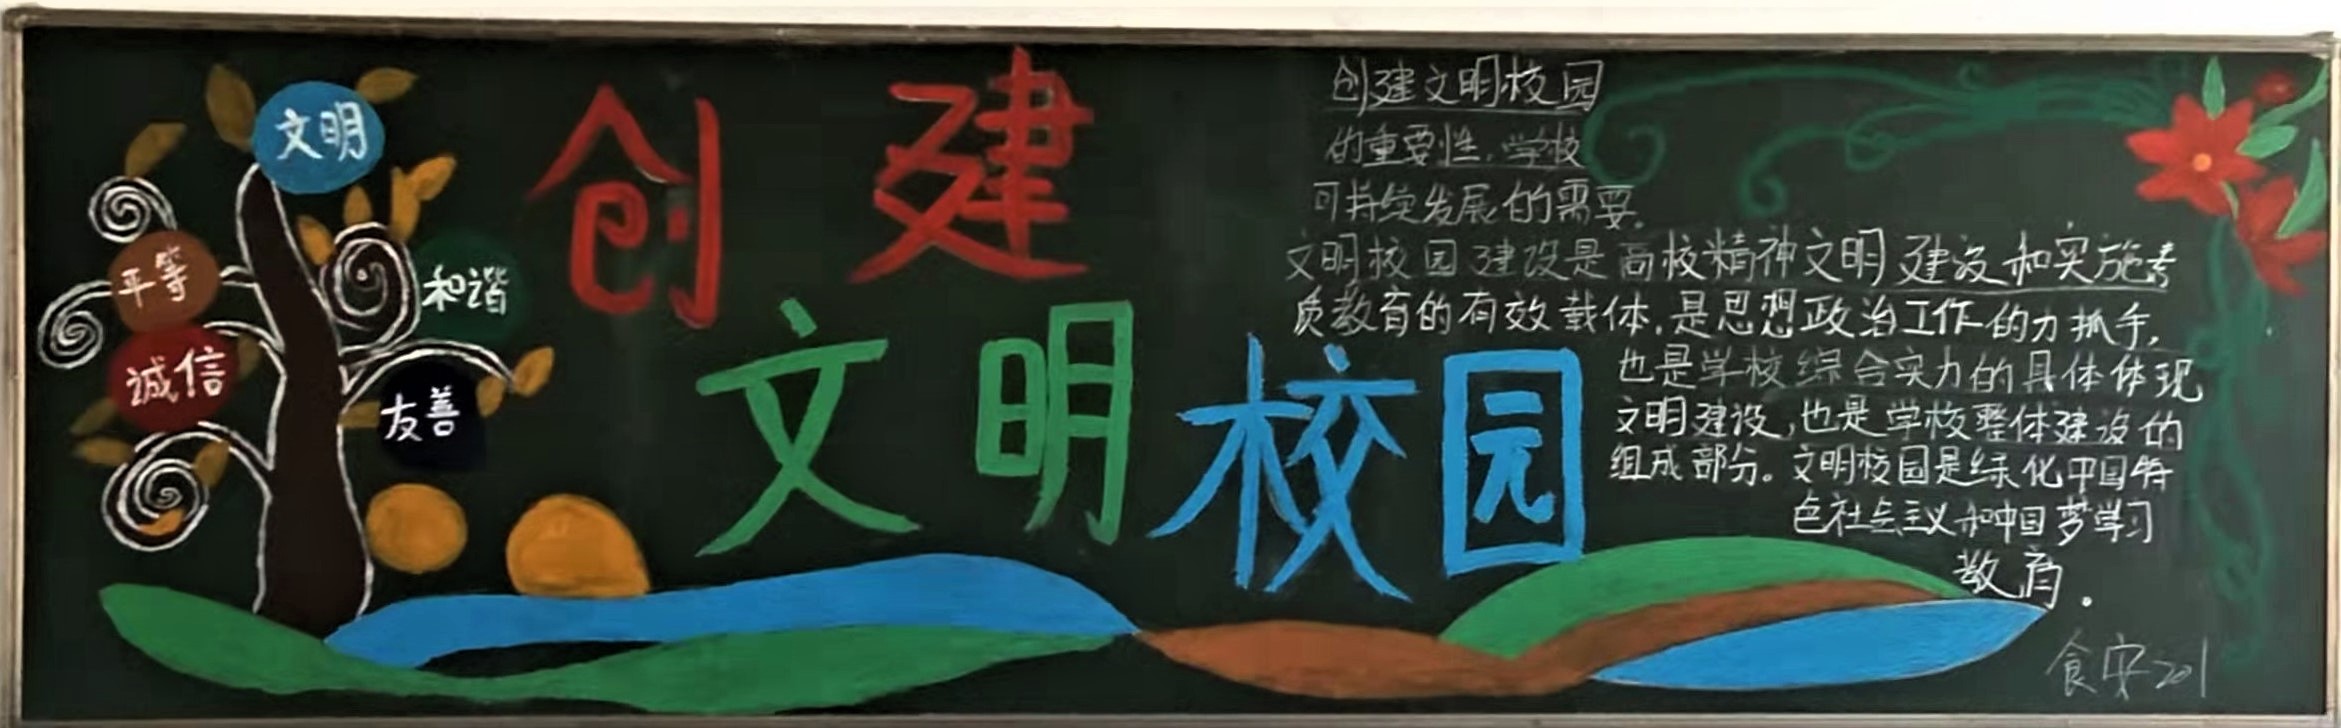 文明
平等
和谐
诚信
友善
创建
文明校园
创建文明校园
的重要性,学校
可持续发展的需要。
文明校园建设是高校精神文明建设和实施素
质教育的有效载体,是思想政治工作的力抓手,
也是学校综合实力的具体体现
文明建设,也是学校整体建设的
组成部分。文明校园是绿化中国特
色社会主义和中国梦学习
教育.
食安201